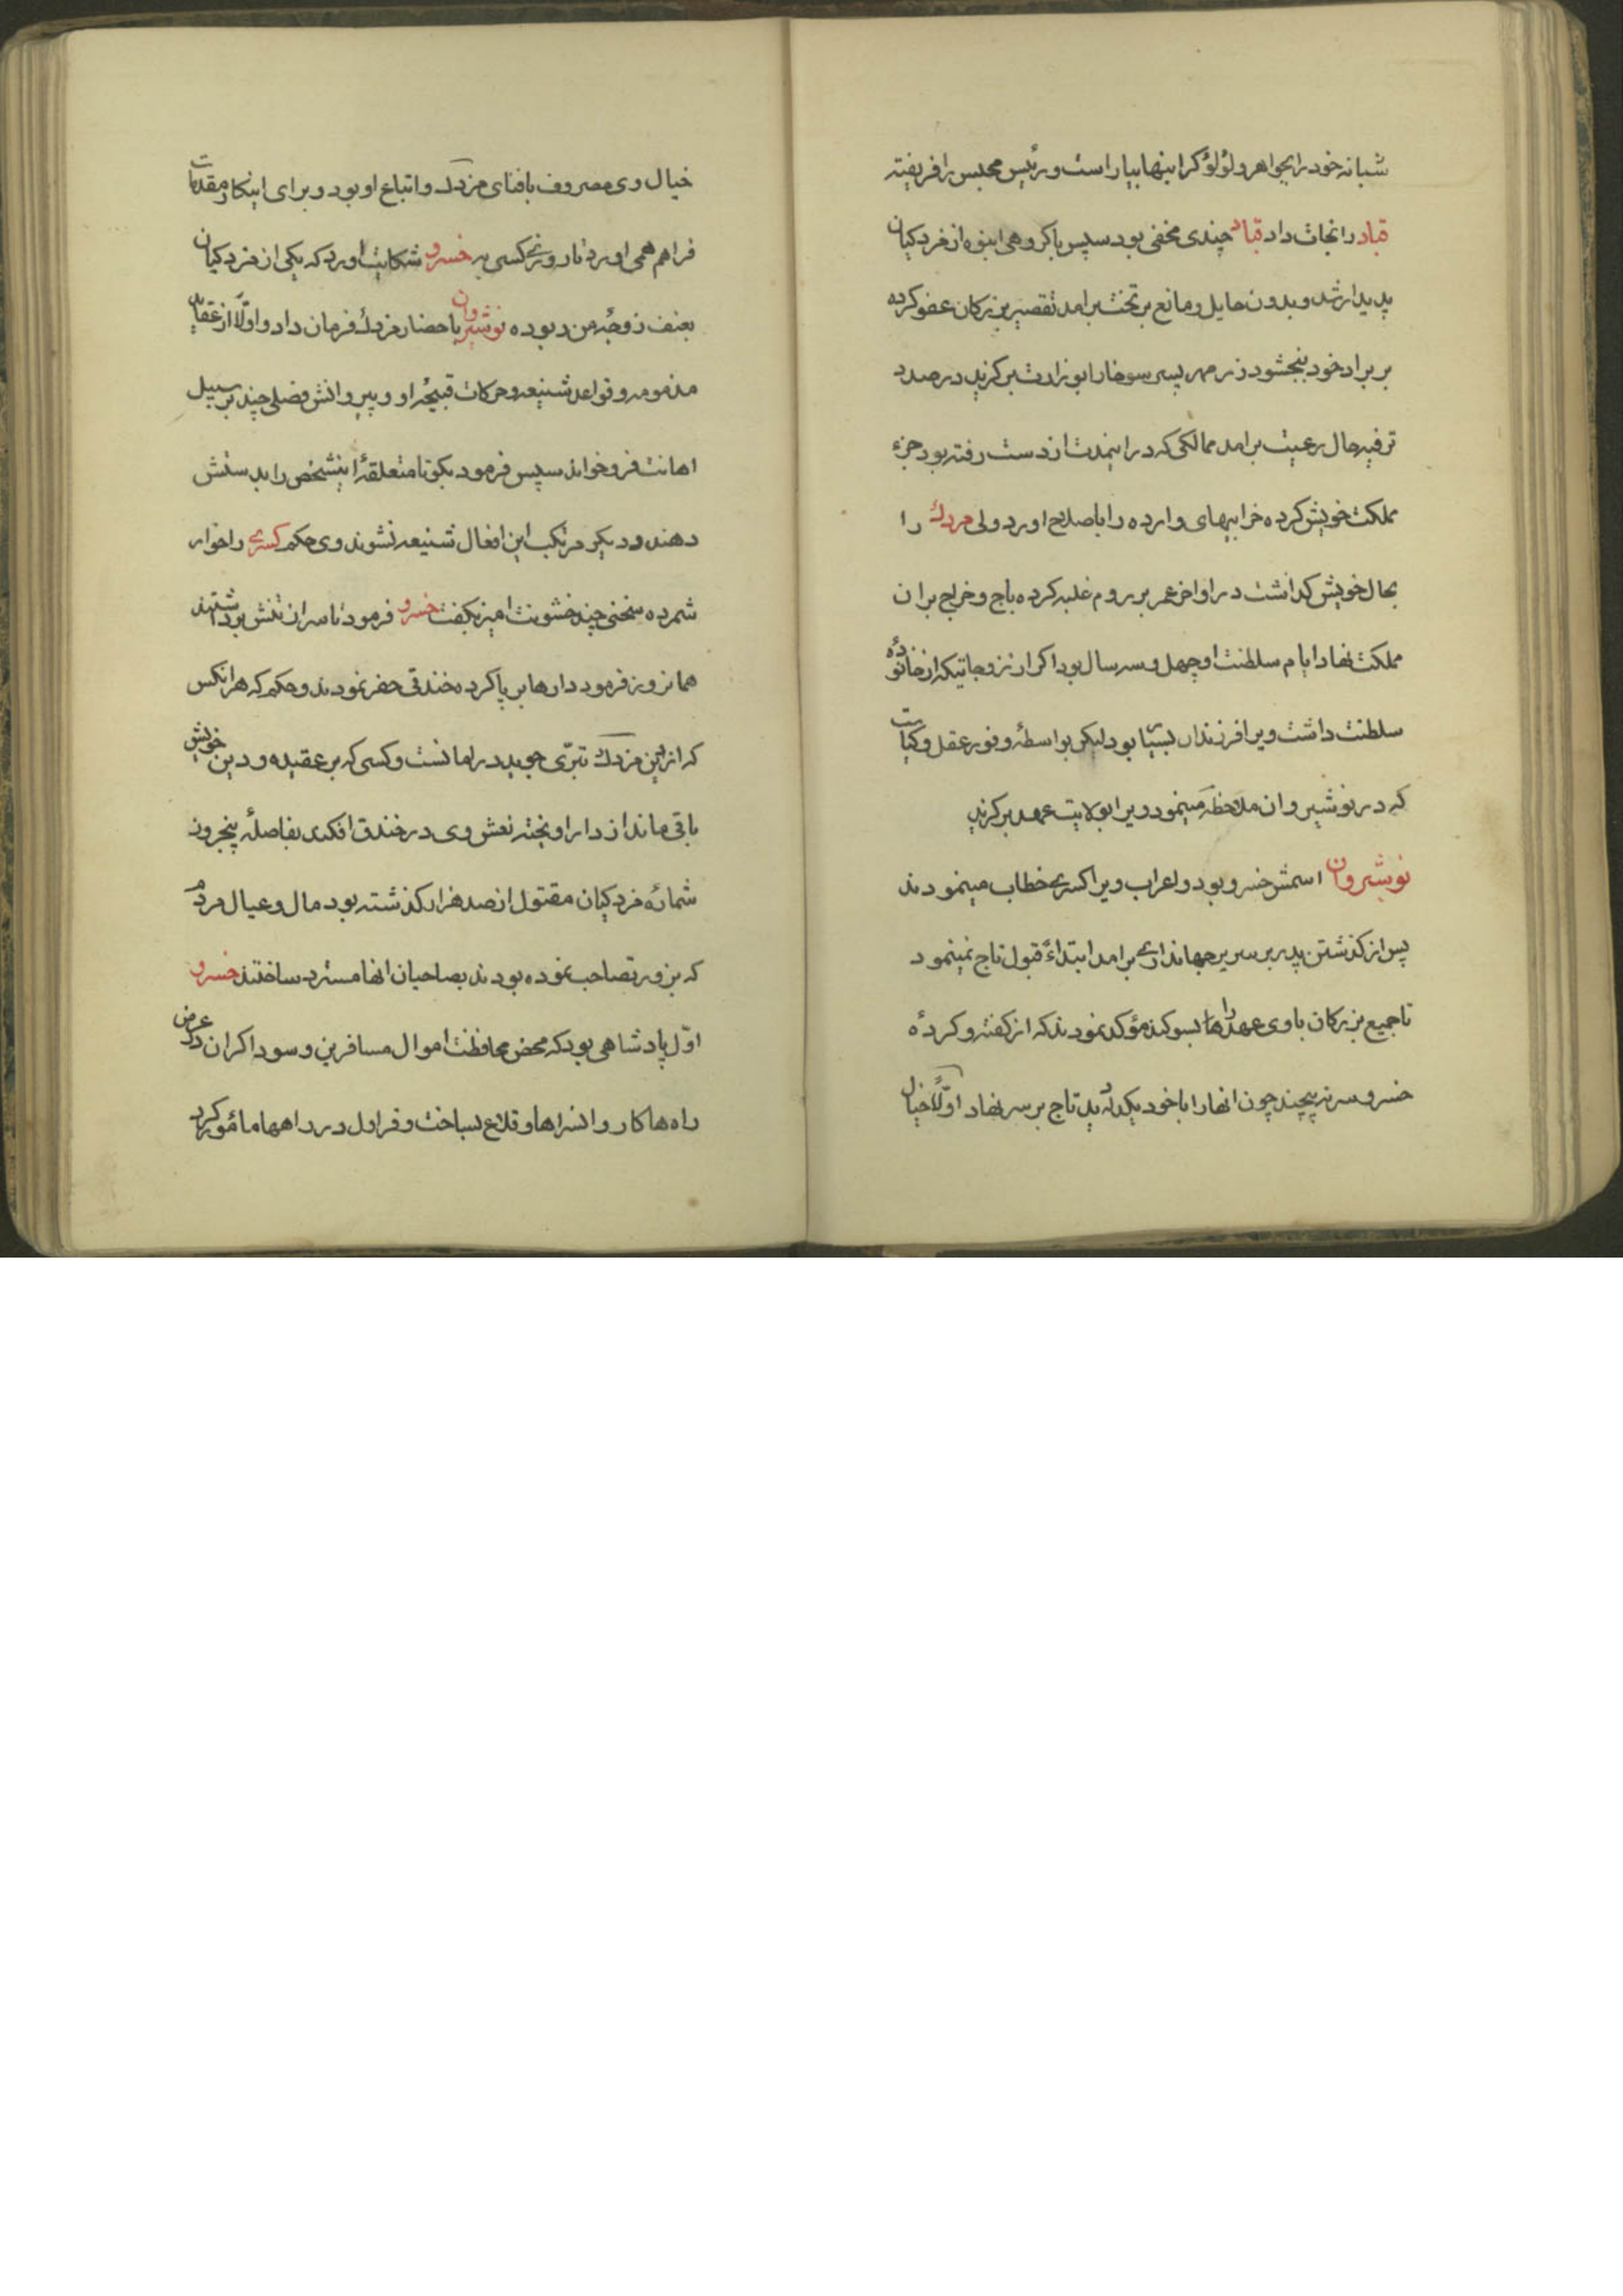 شبانه خود را بجواهر و لؤلؤ گرانبها بیاراست و رئیس محبس را فریفته
قباد را نجات داد قباد چندی مخفی بود سپس باکروهی انبوه از مزدکیان
پدیدار شد و بدون حایل و مانع بر تخت برامد تقصیر بزرکان عفو کرده
بر برادر خود ببخشود زرمهر پسر سوخرا را بوزارت برکزید در صدد
ترفیه حال رعیت برامد ممالکی که در اینمدت از دست رفته بود جزء
مملکت خویش کرده خرابیهای وارده را باصلاح اورد ولی مزدک را
بحال خویش کذاشت در اواخر عمر بر روم غلبه کرده باج و خراج بران
مملکت نهاد ایام سلطنت او چهل و سه سال بود اکر از زوجاتیکه از خانوادهٔ
سلطنت داشت ویرا فرزندان بسیار بود لیکن بواسطهٔ وفور عقل و کیاست
که در نوشیروان ملاحظه مینمود ویرا بولایت عهد برکزید
نوشیروان اسمش خسرو بود و اعراب ویرا کسری خطاب مینمودند
پس از کذشتن پدر بر سریر جهانداری برامد ابتداءً قبول تاج نمینمود
تا جمیع بزرکان با وی عهدها را بسوکند مؤکد نمودند که از کفته و کردهٔ
خسرو سر نپیچند چون انها را با خود یکدله دید تاج بر سر نهاد اولاً خیال
خیال وی مصروف بافنای مزدک و اتباع او بود و برای اینکار مقدمات
فراهم همی اورد تا روزی کسی به خسرو شکایت اورد که یکی از مزدکیان
بعنف زوجهٔ من ربوده نوشیروان باحضار مزدک فرمان داد و اولاً از عقاید
مذمومه و قواعد شنیعه و حرکات قبیحهٔ او و پیروانش فصلی چند بر سبیل
اهانت فرو خواند سپس فرمود بکو تا متعلقهٔ اینشخص را بدستش
دهند و دیکر مرتکب این افعال شنیعه نشوند وی حکم کسری را خوار
شمرده سخنی چند خشونت امیز بکفت خسرو فرمود تا سر از تنش برداشتند
همانروز فرمود دارها بر پا کرده خندقی حفر نمودند و حکم که هر انکس
که از دین مزدک تبرّی جوید در امانست و کسی که بر عقیده و دین خویش
باقی ماند از دار اویخته نعش وی در خندق افکند بفاصلهٔ پنجروز
شمارهٔ مزدکیان مقتول از صد هزار کذشته بود مال و عیال مردم
که بزور تصاحب نموده بودند بصاحبان انها مسترد ساختند خسرو
اوّل پادشاهی بود که محض محافظت اموال مسافرین و سوداکران در عرض
راه‌ها کاروانسراها و قلاع بساخت و قراول در راهها مامٔور کرد